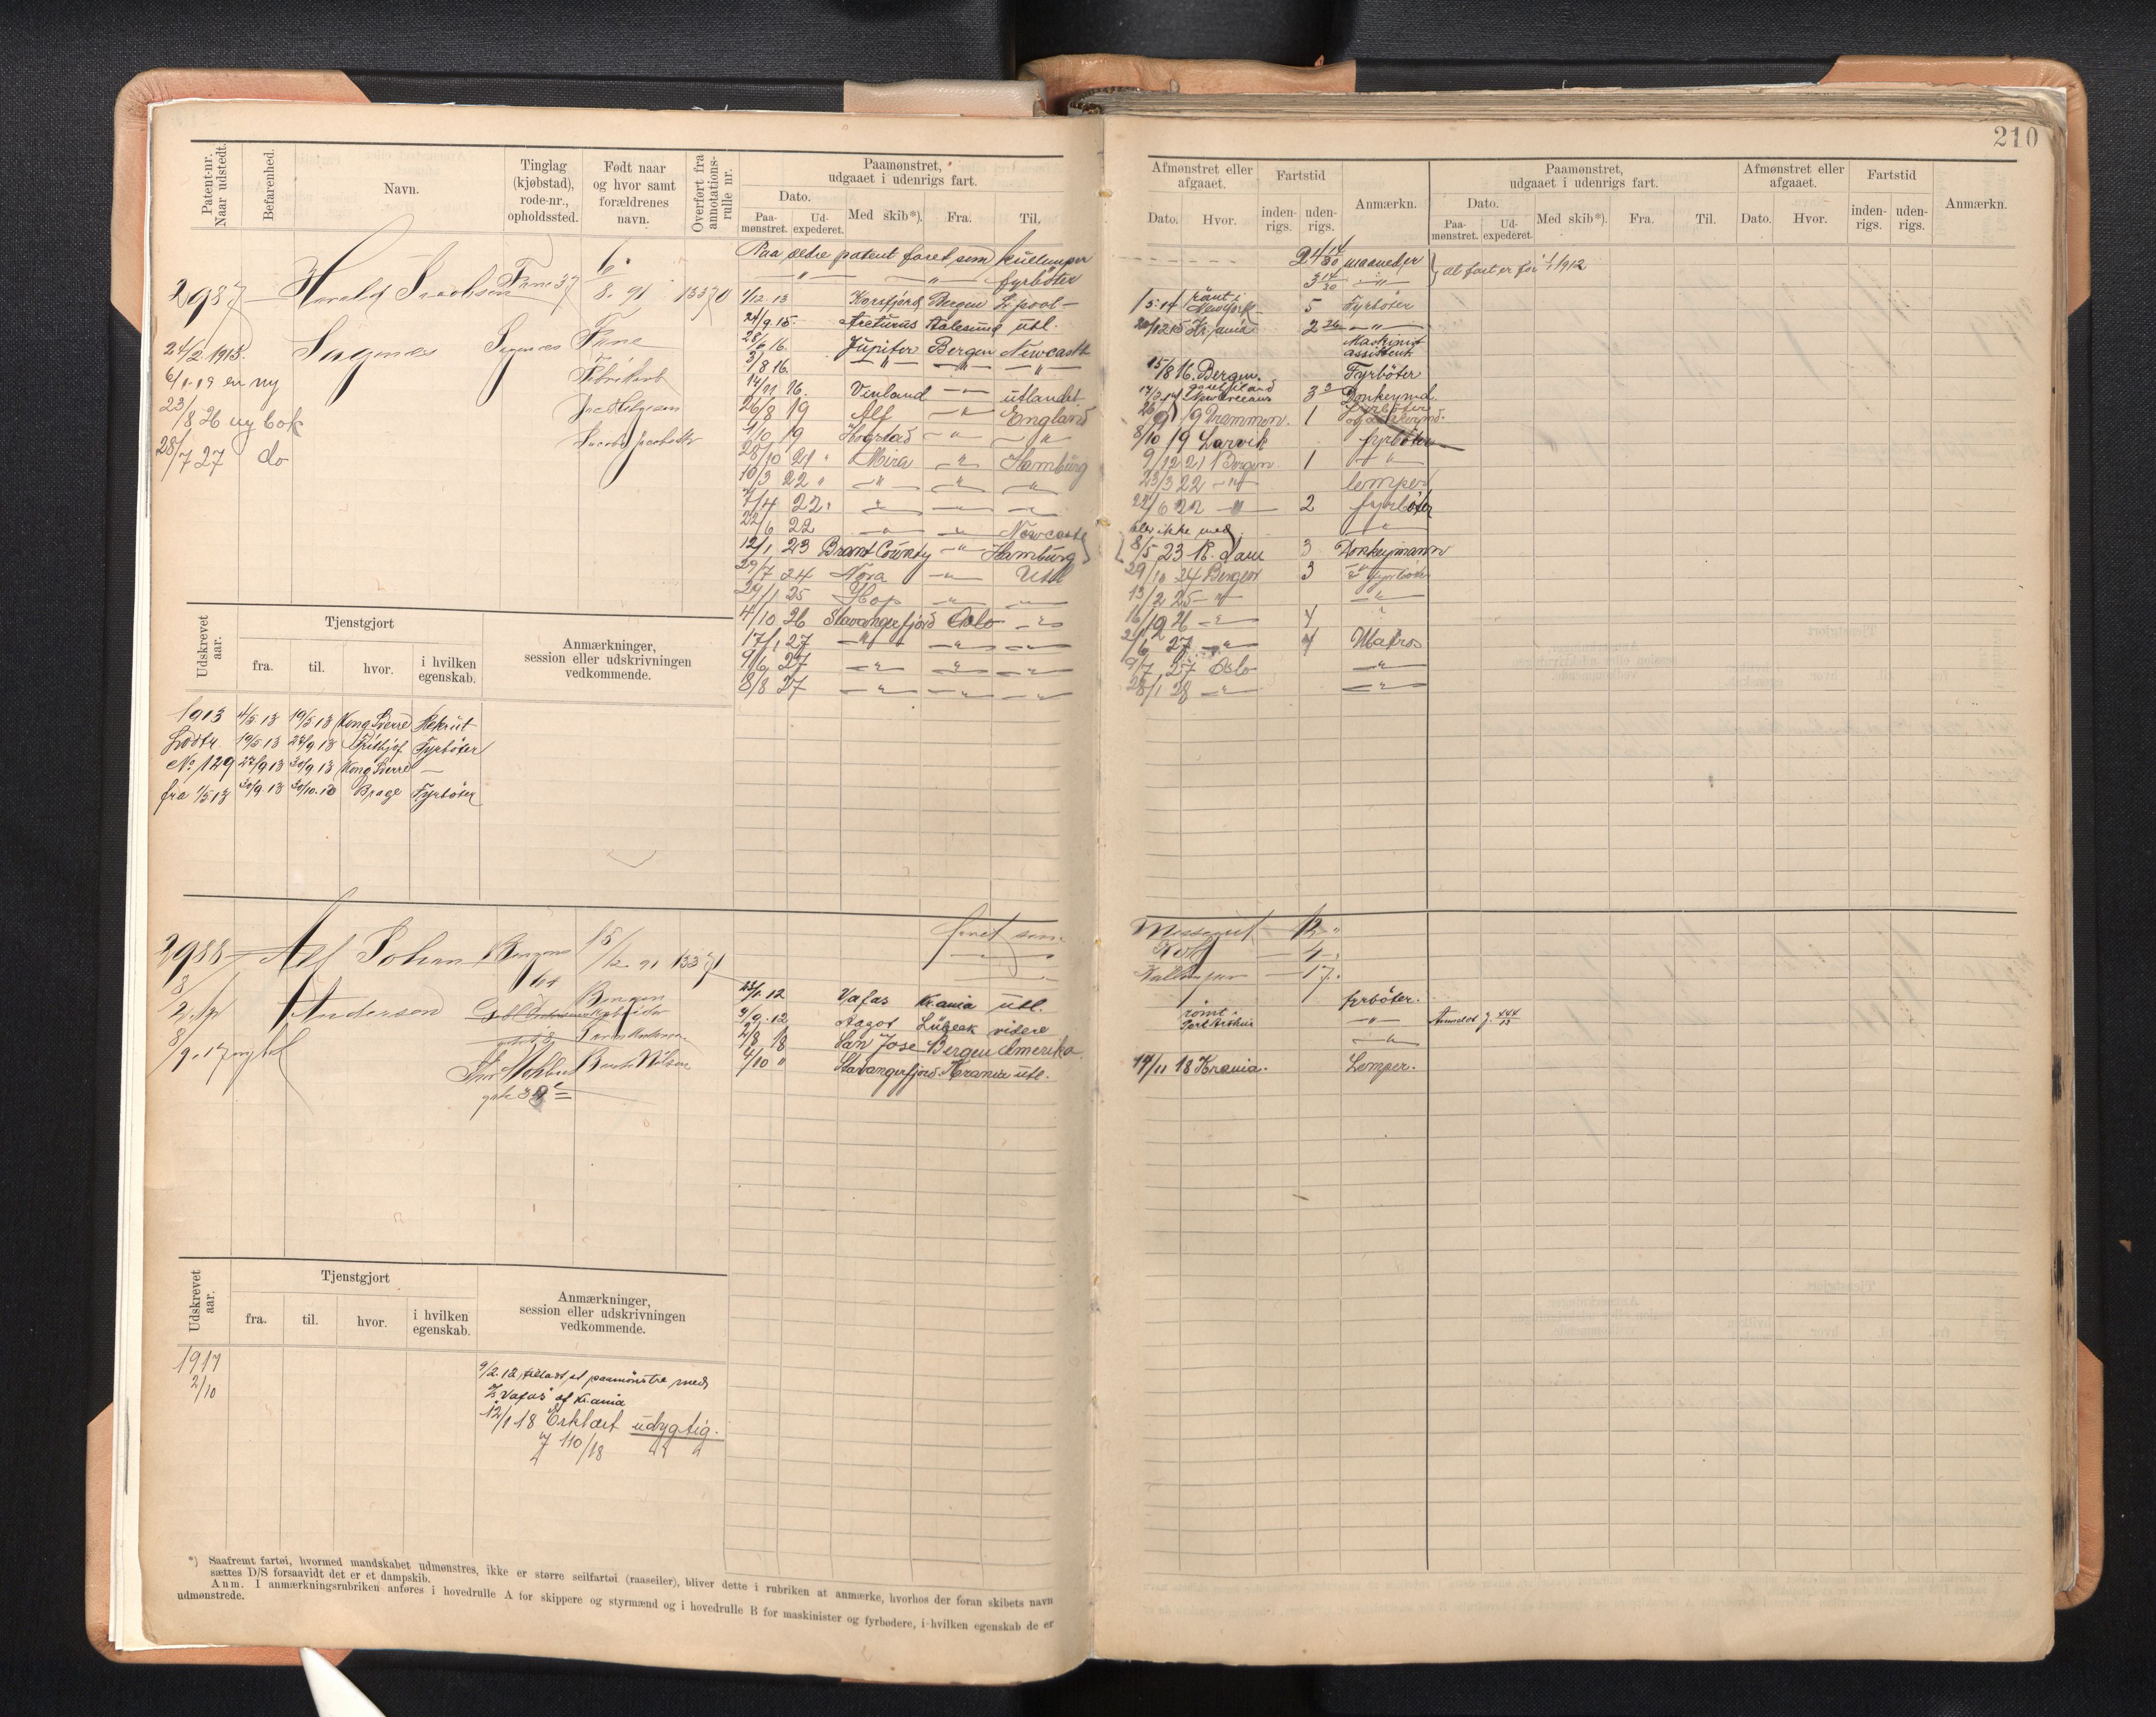 210
Patent-nr. Naar udstedt.
Befarenhed.
Navn.
Tinglag (kjøbstad), rode-nr., opholdssted.
Født naar og hvor samt forældrenes navn.
Overført fra annotations-rulle nr.
Paamønstret, udgaaet i udenrigs fart.
Dato.
Paa-mønstret.
Ud-expederet.
Med skib*).
Fra.
Til.
Afmønstret eller afgaaet.
Dato.
Hvor.
Fartstid
inden-rigs.
uden-rigs.
Anmærkn.
Paamønstret, udgaaet i udenrigs fart.
Dato.
Paa-mønstret.
Ud-expederet.
Med skib*).
Fra.
Til.
Afmønstret eller afgaaet.
Dato.
Hvor.
Fartstid
inden-rigs.
uden-rigs.
Anmærkn.
2987 Harald Jacobsen Fane 37 6/8. 91 13370
24/2. 1913. Sagnæs Fane
6/1.19 en ny
23/8 26 ny bok
28/7 27 do
Paa ældre patent faret som kullemper 24 14/30 maaneder
" " fyrbøter 3 14/30 " } at fart er før 1/1 1912
1/12 13 Korsfjord Bergen L.pool 1/5.14 rømt i New York 5 Fyrbøter
24/9.15. Arcturus Aalesund utl. Kr.ania 2 "
28/6 16. Jupiter Bergen Newcastle Maskinist assistent
3/8 16. " " " 15/8 16. Bergen. Fyrbøter
14/11 16. Vinland " utlandet 3 Donkeymd.
26/8 19 Alf " England 9 19 Drammen. 1 Fyrbøter
1/10 19 Hogstad " " 8/10 19 Larvik fyrbøter
28/10 21 Mira " Hamburg 9/12 21 Bergen 1 "
10/3 22 " " " 23/3 22 " lemper
7/4 22 " " " 24/6 22 " 2 fyrbøter
22/6 22 " " Newcastle blev ikke med "
12/1 23 Brant County " Hamburg 8/5 23 R.dam 3 Donkeymann
29/7 24 Nora " Utl 29/10 24 Bergen 3 fyrbøter
29/1 25 Hop " " 13/2 25 " "
4/10 26 Stavangerfjord Oslo " 16/12 26 " 4
17/1 27 " " " 27 " 4 Matros
9/6 27 " " " 9/7 27 Oslo "
8/8 27 " " " 28/1 28 " "
Udskrevet aar.
Tjenstgjort
fra.
til.
hvor.
i hvilken egenskab.
Anmærkninger, session eller udskrivningen vedkommende.
1913 4/5 13 19/5 13 Kong Sverre Rekrut
Lodtr. 19/5 13 23/9 13 Frithjof Fyrbøter
No. 129 23/9 13 30/9 13 Kong Sverre —
fra 1/5 13 30/9 13 30/10.13 Brage Fyrbøter
2988 Alf Johan Bergens 15/12 91 13371
Andersen Bergen
8/9.17 ny bok
gate 38
faret som Messegut 12
Kok 4
Kullemper 17.
23/1.12 Vafas Kr.ania utl. fyrbøter.
3/9.12 Aagot Lübeck videre rømt Port Arthur " Anmeldt J. 444/13
2/8 18 San Jose Bergen Amerika "
4/10 " Stavangerfjord Krania utl. 14/11 18 Krania. Lemper.
Udskrevet aar.
Tjenstgjort
fra.
til.
hvor.
i hvilken egenskab.
Anmærkninger, session eller udskrivningen vedkommende.
1917
2/10
9/2.12 tilladt at paamønstre med
"Vafas" af Kr.ania
12/1 18 Erklært udygtig.
J 110/18
*) Saafremt fartøi, hvormed mandskabet udmønstres, ikke er større seilfartøi (raaseiler), bliver dette i rubriken at anmærke, hvorhos der foran skibets navn
sættes D/S forsaavidt det er et dampskib.
Anm. I anmærkningsrubriken anføres i hovedrulle A for skippere og styrmænd og i hovedrulle B for maskinister og fyrbødere, i hvilken egenskab de er
udmønstrede.